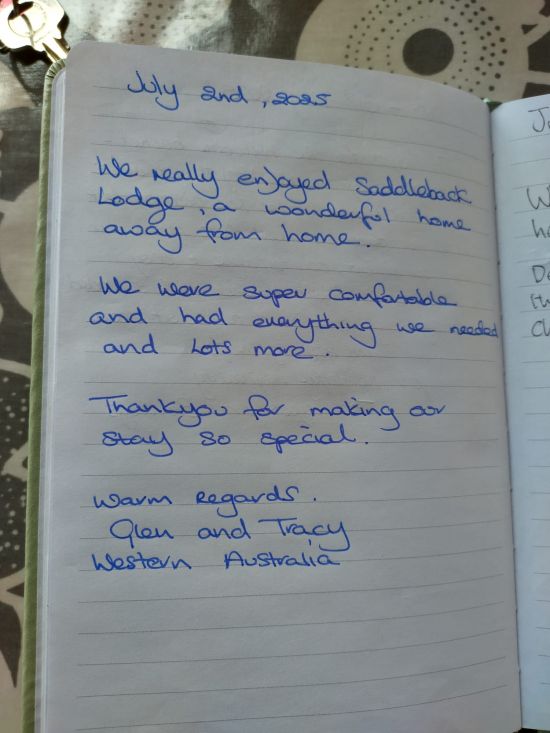 July 2nd, 2025
We really enjoyed Saddleback
Lodge, a wonderful home
away from home.
We were super comfortable
and had everything we needed
and Lots more.
Thankyou for making our
stay so special.
Warm Regards.
Glen and Tracy
Western Australia